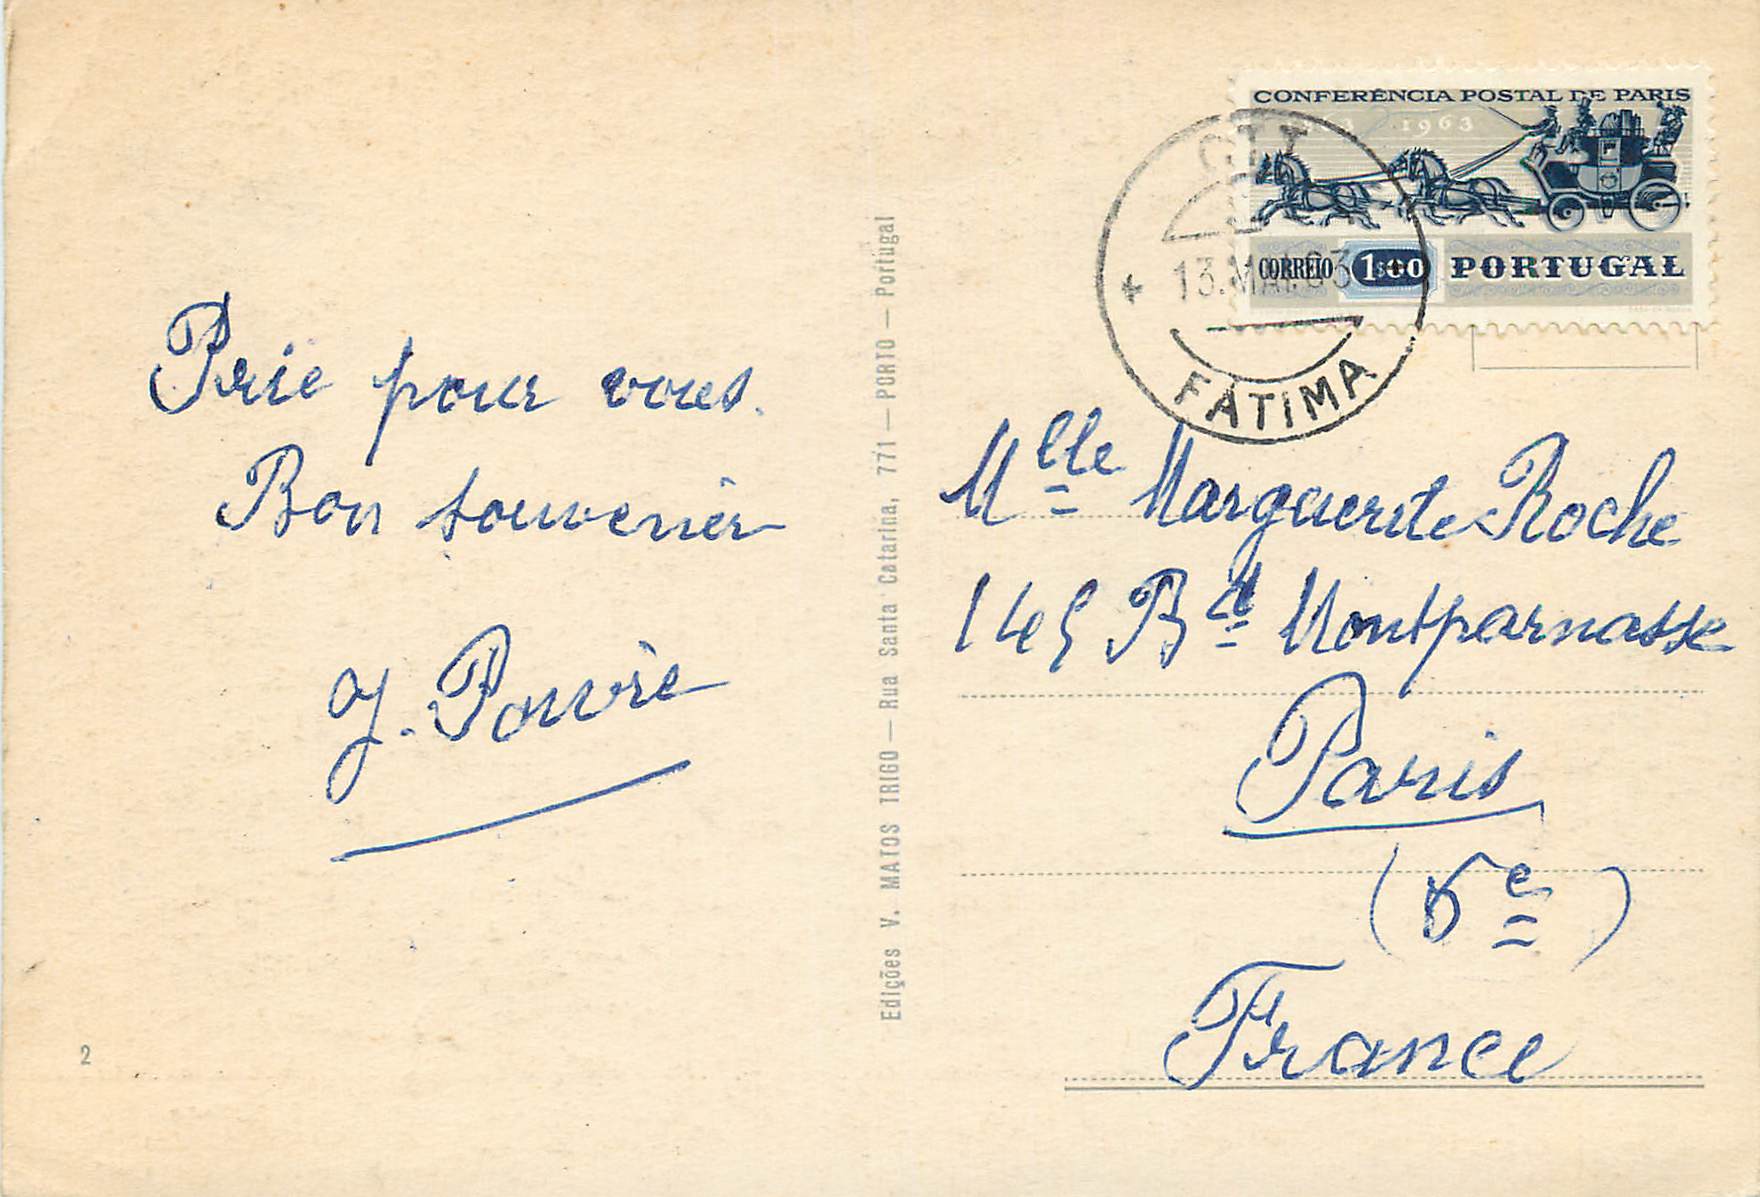 Prie pour vous.
Bon souvenir
J. Pouvie
2
Edições V. MATOS TRIGO — Rua Santa Catarina, 771 — PORTO — Portugal
CONFERÊNCIA POSTAL DE PARIS
1863 1963
CORREIO 1$00 PORTUGAL
CTT
13.MAI.63
FÁTIMA
Mlle Marguerite Roche
145 Bd Montparnasse
Paris
(6e)
France